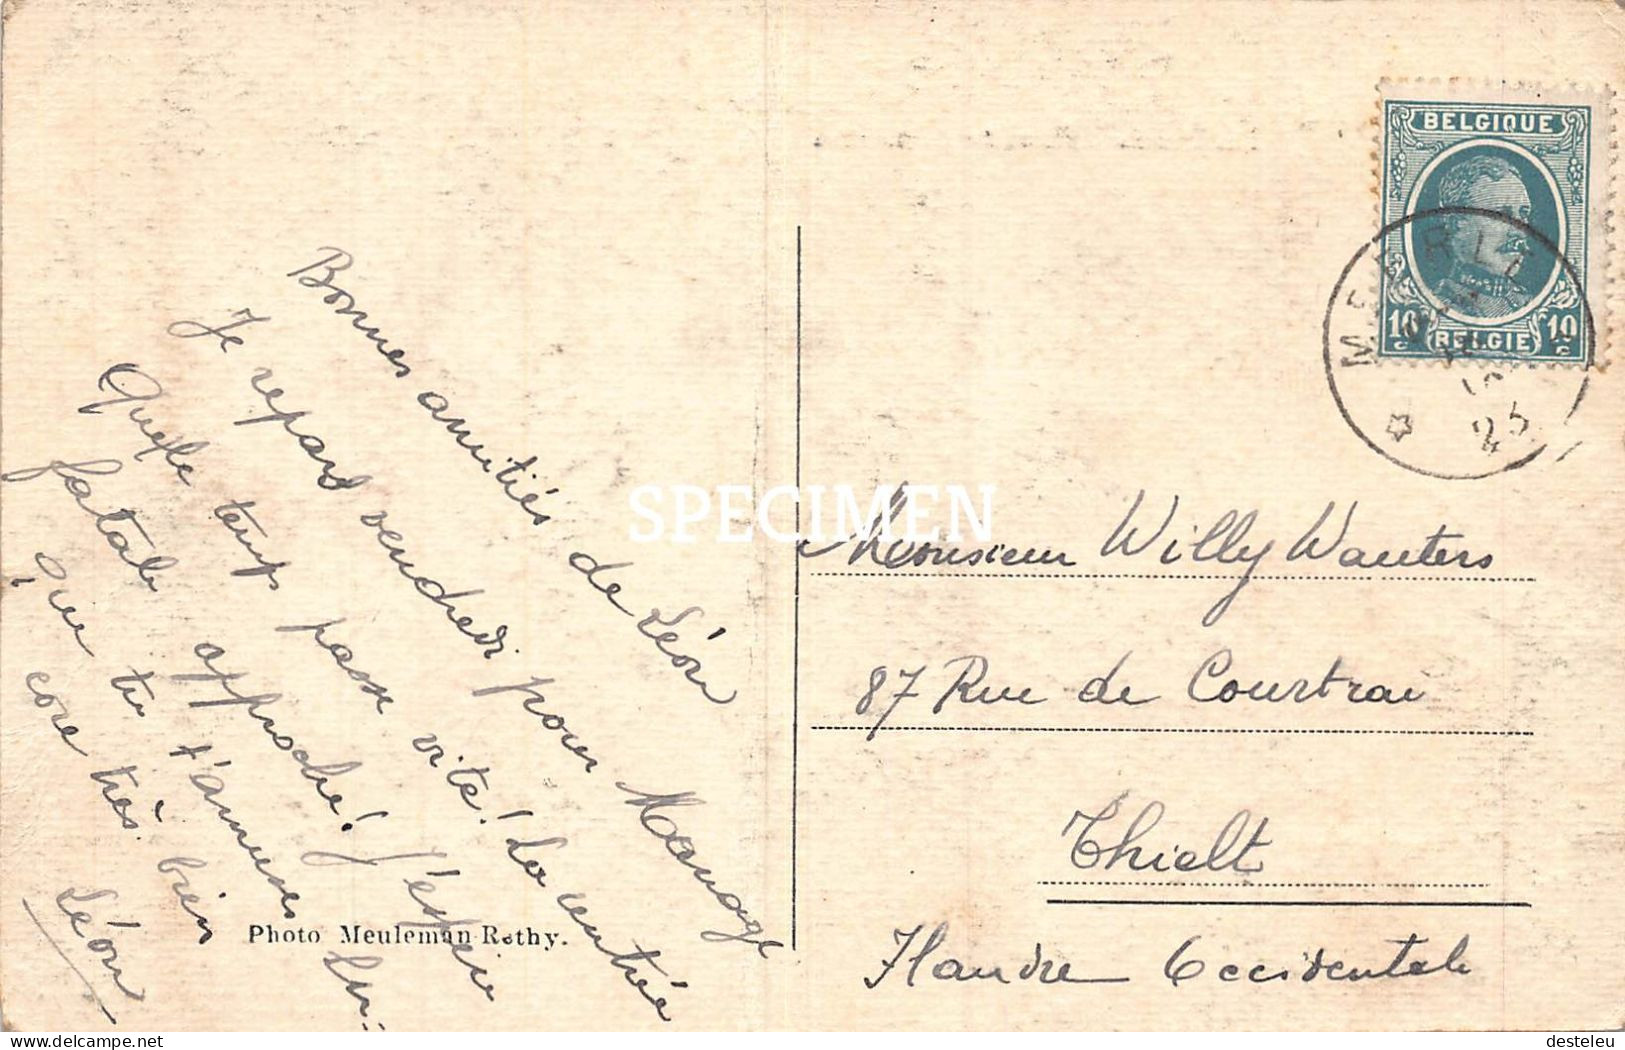 Bonnes amitiés de Léon
Je repars vendredi pour Manage
Quelle temps passe vite! La rentrée
fatale approche! J'espère
que tu t'amuses en-
core très bien
Léon
Photo Meuleman-Rothy.
BELGIQUE
10 c
BELGIE
10 c
23
SPECIMEN
Monsieur Willy Wauters
87 Rue de Courtrai
Thielt
Flandre Occidentale
delcampe.net
desteleu